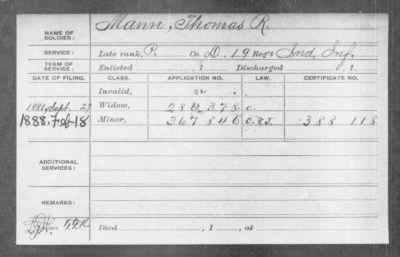 NAME OF SOLDIER: Mann, Thomas R.
SERVICE: Late rank, P. Co. D, 19 Reg't Ind. Inf.
TERM OF SERVICE: Enlisted , 1 Discharged , 1
DATE OF FILING. CLASS. APPLICATION NO. LAW. CERTIFICATE NO.
Invalid,
1881, Sept. 27 Widow, 284,378
1888. Feb 18 Minor, 367 846 388 118
ADDITIONAL SERVICES:
REMARKS:
Died , 1 , at